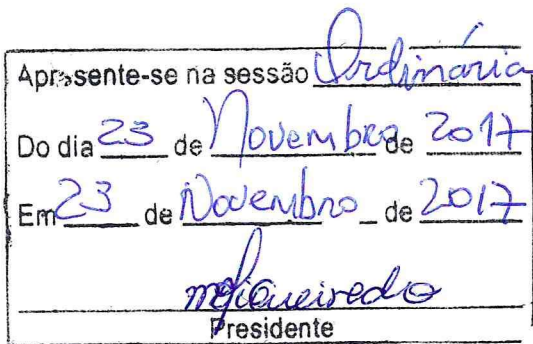 Apresente-se na sessão Ordinária
Do dia 23 de Novembro de 2017
Em 23 de Novembro de 2017
Presidente